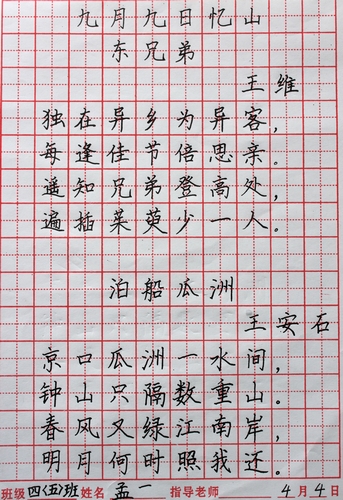 九月九日忆山
东兄弟
王维
独在异乡为异客，
每逢佳节倍思亲。
遥知兄弟登高处，
遍插茱萸少一人。
泊船瓜洲
王安石
京口瓜洲一水间，
钟山只隔数重山。
春风又绿江南岸，
明月何时照我还。
班级四(五)班姓名孟一 指导老师 4月4日